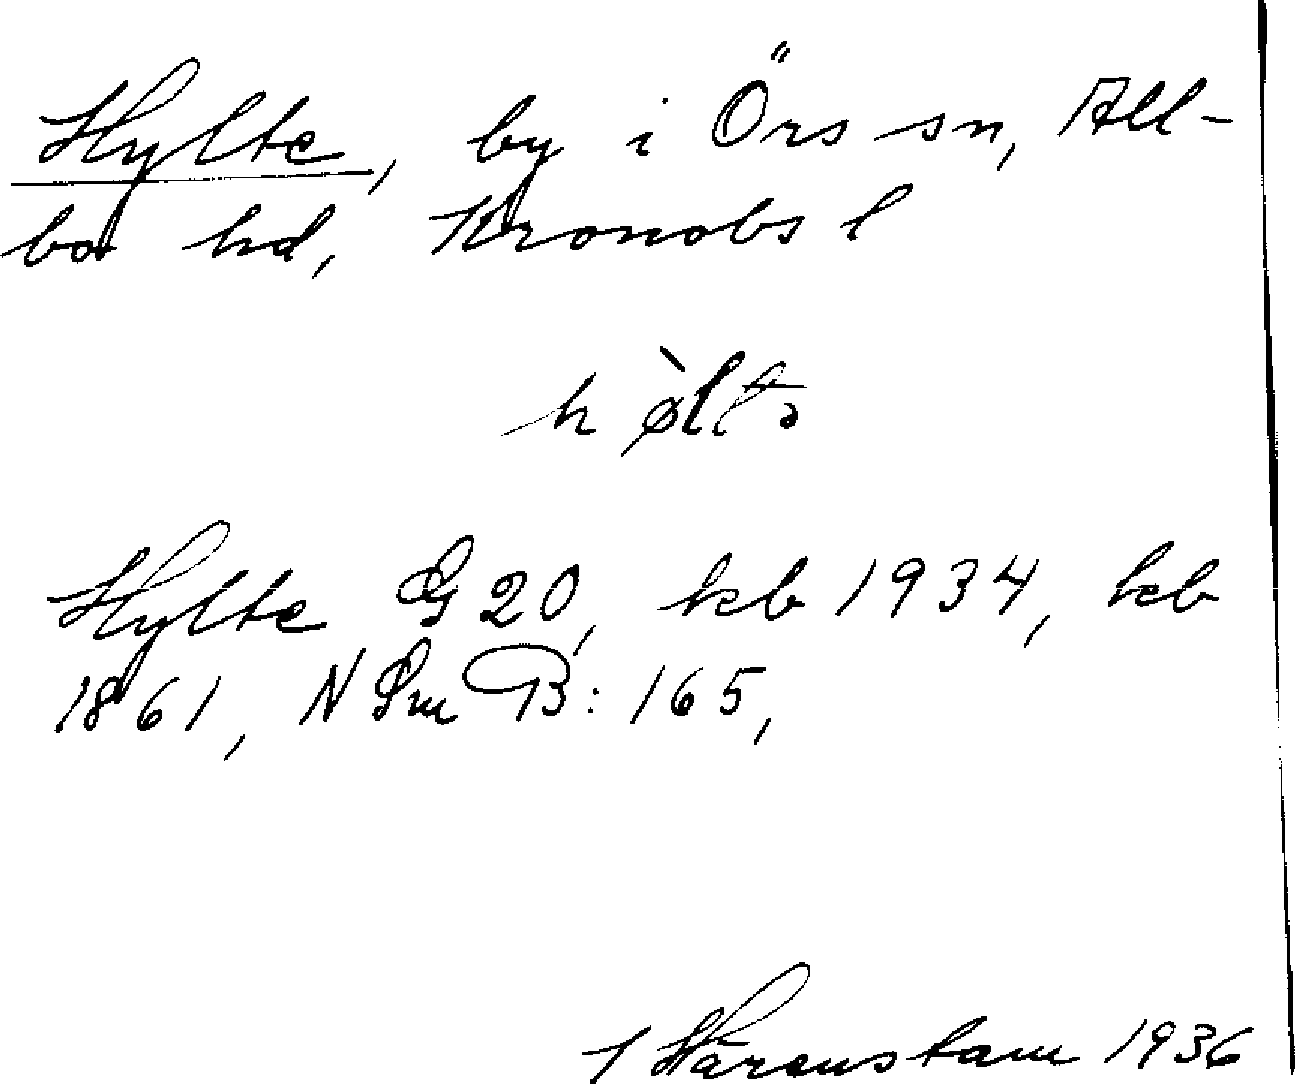 Hylte, by i Örs sn, All-
bo hd, Kronobs l
hø̀ltə
Hylte G 20, kb 1934, kb
1861, N Sm B: 165,
I Härenstam 1936